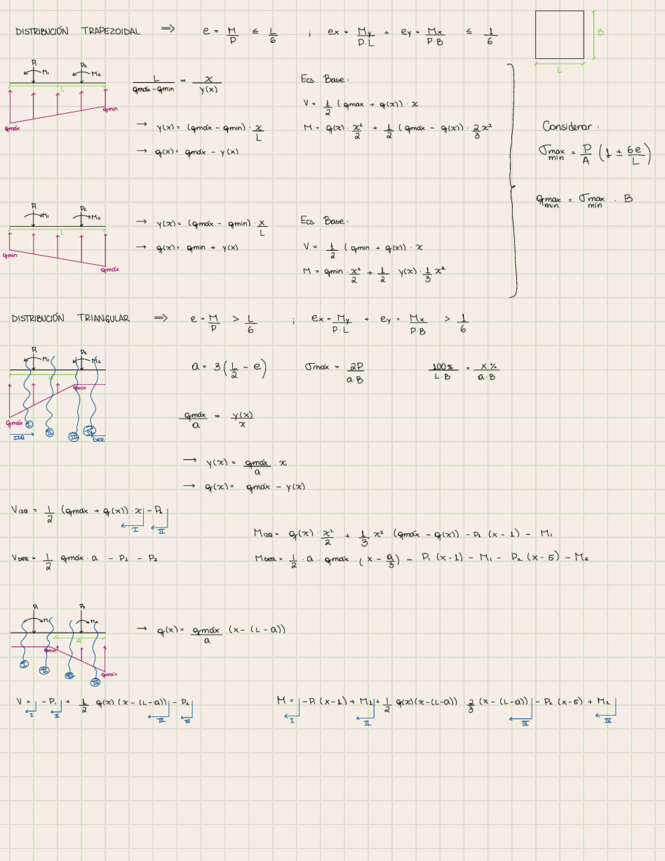 DISTRIBUCIÓN TRAPEZOIDAL ⟹ e = M/P ≤ L/6 ; ex = My/P·L + ey = Mx/P·B ≤ 1/6
B
L
P1 M1 P2 M2
L
qmáx qmin
L/(qmáx - qmin) = x/y(x)
→ y(x) = (qmáx - qmin) · x/L
→ q(x) = qmáx - y(x)
Ecs Base:
V = 1/2 (qmax + q(x)) · x
M = q(x) · x²/2 + 1/2 (qmáx - q(x)) · 2/3 x²
Considerar:
σmax/min = P/A (1 ± 6e/L)
qmax/min = σmax/min · B
P1 M1 P2 M2
L
qmin qmáx
→ y(x) = (qmáx - qmin) · x/L
→ q(x) = qmin + y(x)
Ecs Base:
V = 1/2 (qmin + q(x)) · x
M = qmin · x²/2 + 1/2 y(x) · 1/3 x²
DISTRIBUCIÓN TRIANGULAR ⟹ e = M/P > L/6 ; ex = My/P·L + ey = Mx/P·B > 1/6
P1 M1 P2 M2
qmin
qmáx
IZQ DER
a = 3(L/2 - e)
σmax = 2P/a·B
100%/L·B = x%/a·B
qmáx/a = y(x)/x
→ y(x) = qmáx/a · x
→ q(x) = qmáx - y(x)
VIZQ = 1/2 (qmáx + q(x)) x - P1
I II
MIZQ = q(x) · x²/2 + 1/3 x² (qmáx - q(x)) - P1 (x-1) - M1
VDER = 1/2 qmáx · a - P1 - P2
MDER = 1/2 · a · qmáx (x - a/3) - P1 (x-1) - M1 - P2 (x-5) - M2
P1 M1 P2 M2
a
qmin
qmáx
→ q(x) = qmáx/a (x - (L-a))
V = - P1 + 1/2 q(x) (x - (L-a)) - P2
I II III IV
M = - P1 (x-1) + M1 + 1/2 q(x)(x-(L-a)) · 2/3 (x - (L-a)) - P2 (x-5) + M2
I II III IV